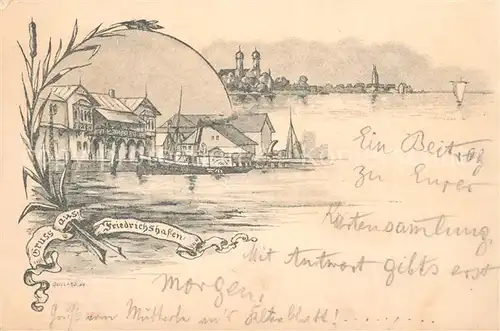 Gruss aus
Friedrichshafen.
Ein Beitrag
zu Eurer
Kartensammlung,
Mit Antwort gibts erst
morgen,
Gruß vom Mütterle